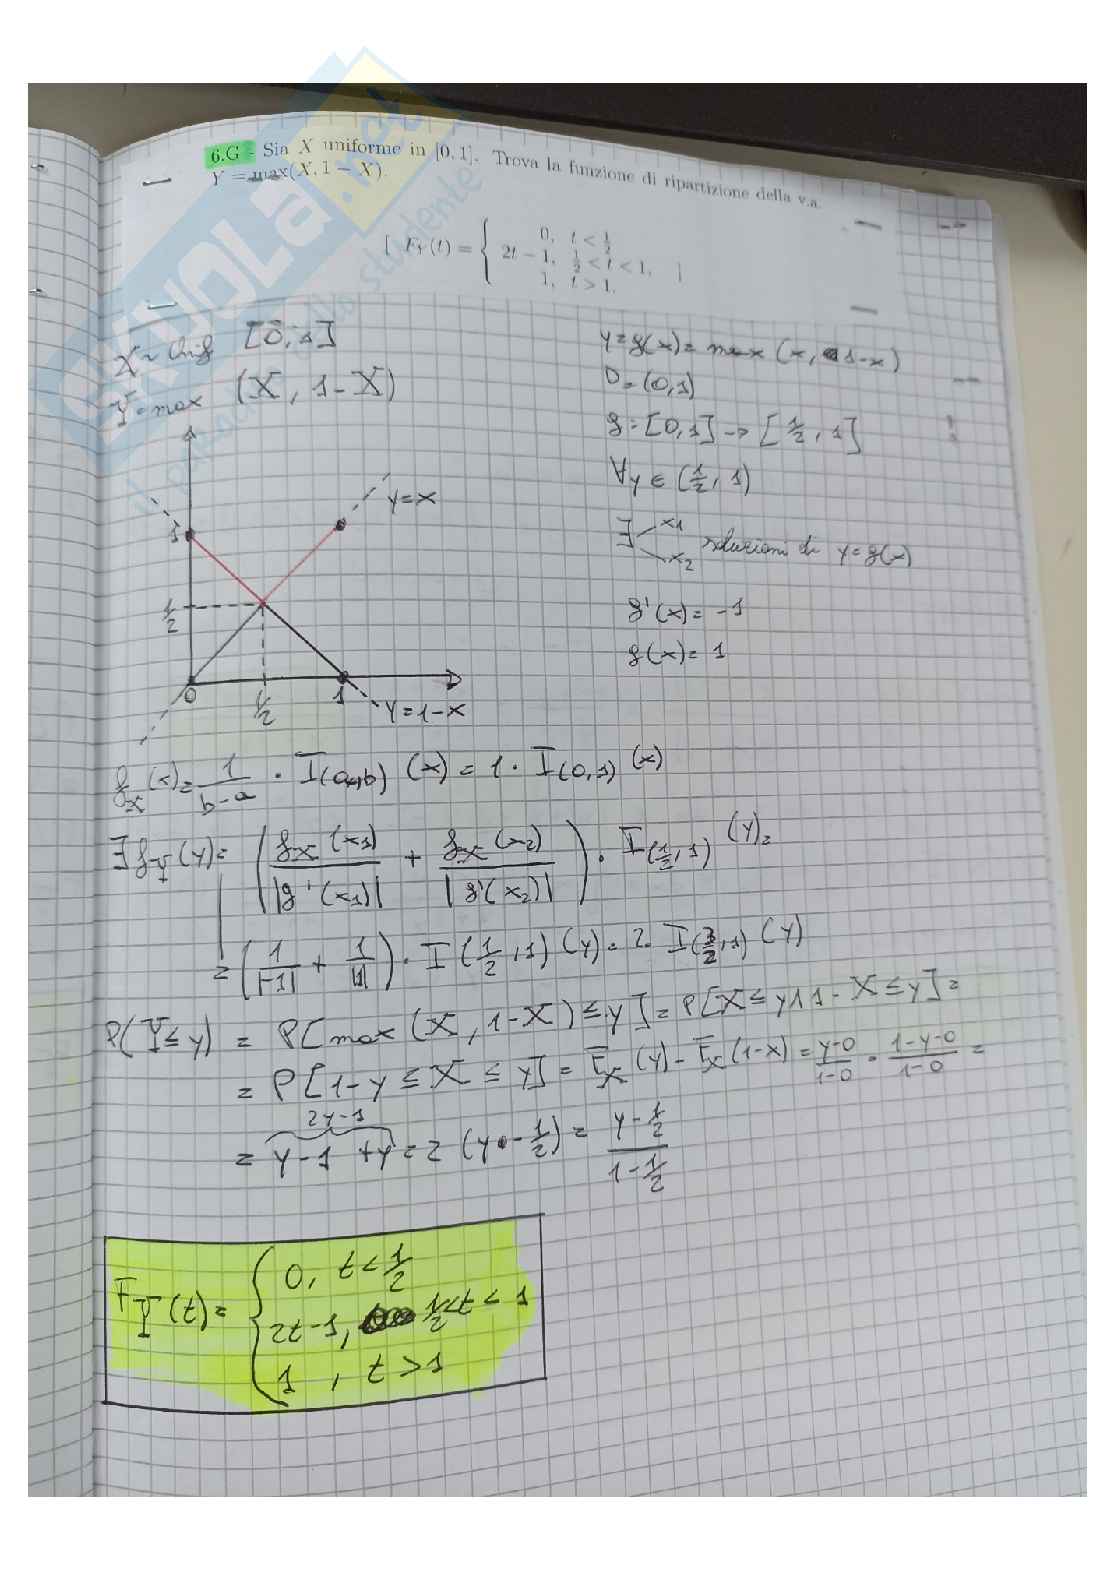 6.G - Sia X uniforme in [0, 1]. Trova la funzione di ripartizione della v.a.
Y = max(X, 1 − X).
[ F_Y(t) = { 0, t < 1/2
2t − 1, 1/2 < t < 1,
1, t > 1. ]
X ~ Unif [0, 1]
Y = max (X, 1-X)
y = x
1
1/2
0
1/2
1
y = 1-x
y = g(x) = max (x, 1-x)
D = (0,1)
g: [0,1] → [1/2, 1]
∀y ∈ (1/2, 1)
∃ x1 x2 soluzioni di y = g(x)
g'(x) = -1
g(x) = 1
f_X(x) = 1/(b-a) · I(a,b) (x) = 1 · I(0,1) (x)
∃ f_Y(y) = ( f_X(x1)/|g'(x1)| + f_X(x2)/|g'(x2)| ) · I(1/2,1) (y) =
= ( 1/|-1| + 1/|1| ) · I(1/2,1) (y) = 2 · I(1/2,1) (y)
P(Y ≤ y) = P[max (X, 1-X) ≤ y] = P[X ≤ y ∧ 1-X ≤ y] =
= P[1-y ≤ X ≤ y] = F_X(y) - F_X(1-x) = (y-0)/(1-0) - (1-y-0)/(1-0) =
2y-1
= y-1+y = 2 (y - 1/2) = (y - 1/2)/(1 - 1/2)
F_Y(t) = { 0, t < 1/2
2t-1, 1/2 < t < 1
1, t > 1
SKUOLA.net